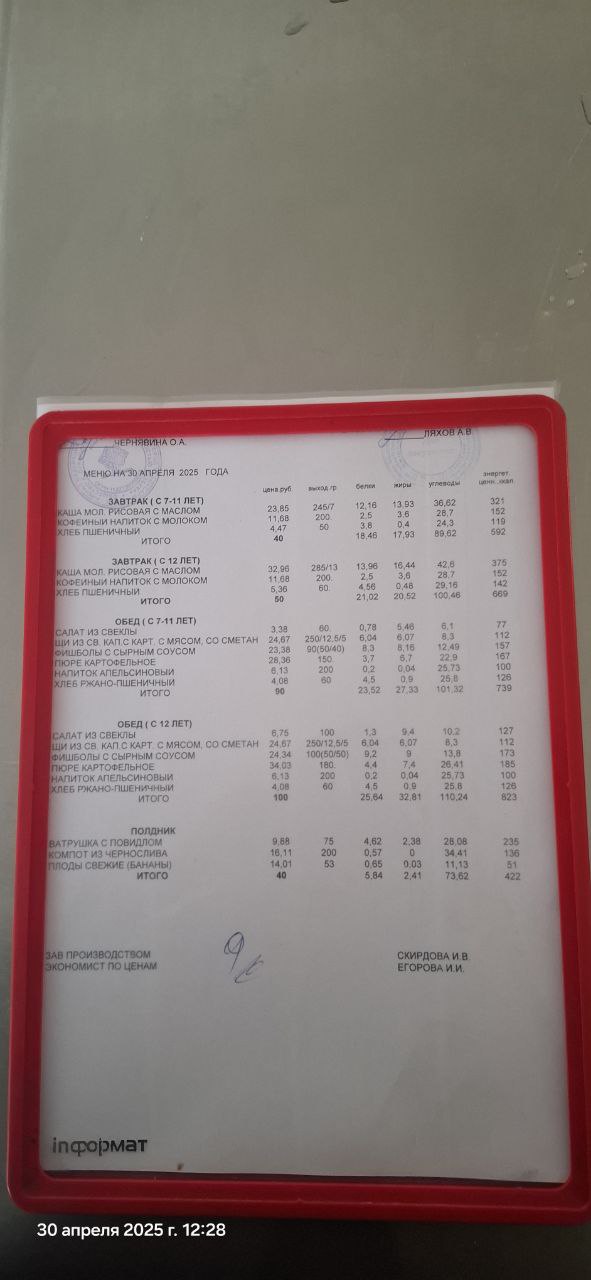 ЧЕРНЯВИНА О.А. ЛЯХОВ А.В.
МЕНЮ НА 30 АПРЕЛЯ 2025 ГОДА
цена,руб. выход,гр. белки жиры углеводы энергет. ценн.,ккал.
ЗАВТРАК ( С 7-11 ЛЕТ)
КАША МОЛ. РИСОВАЯ С МАСЛОМ 23,85 245/7 12,16 13,93 36,62 321
КОФЕЙНЫЙ НАПИТОК С МОЛОКОМ 11,68 200. 2,5 3,6 28,7 152
ХЛЕБ ПШЕНИЧНЫЙ 4,47 50 3,8 0,4 24,3 119
ИТОГО 40 18,46 17,93 89,62 592
ЗАВТРАК ( С 12 ЛЕТ)
КАША МОЛ. РИСОВАЯ С МАСЛОМ 32,96 285/13 13,96 16,44 42,6 375
КОФЕЙНЫЙ НАПИТОК С МОЛОКОМ 11,68 200. 2,5 3,6 28,7 152
ХЛЕБ ПШЕНИЧНЫЙ 5,36 60. 4,56 0,48 29,16 142
ИТОГО 50 21,02 20,52 100,46 669
ОБЕД ( С 7-11 ЛЕТ)
САЛАТ ИЗ СВЕКЛЫ 3,38 60. 0,78 5,46 6,1 77
ЩИ ИЗ СВ. КАП.С КАРТ. С МЯСОМ, СО СМЕТАН 24,67 250/12,5/5 6,04 6,07 8,3 112
ФИШБОЛЫ С СЫРНЫМ СОУСОМ 23,38 90(50/40) 8,3 8,16 12,49 157
ПЮРЕ КАРТОФЕЛЬНОЕ 28,36 150. 3,7 6,7 22,9 167
НАПИТОК АПЕЛЬСИНОВЫЙ 6,13 200 0,2 0,04 25,73 100
ХЛЕБ РЖАНО-ПШЕНИЧНЫЙ 4,08 60 4,5 0,9 25,8 126
ИТОГО 90 23,52 27,33 101,32 739
ОБЕД ( С 12 ЛЕТ)
САЛАТ ИЗ СВЕКЛЫ 6,75 100 1,3 9,4 10,2 127
ЩИ ИЗ СВ. КАП.С КАРТ. С МЯСОМ, СО СМЕТАН 24,67 250/12,5/5 6,04 6,07 8,3 112
ФИШБОЛЫ С СЫРНЫМ СОУСОМ 24,34 100(50/50) 9,2 9 13,8 173
ПЮРЕ КАРТОФЕЛЬНОЕ 34,03 180. 4,4 7,4 26,41 185
НАПИТОК АПЕЛЬСИНОВЫЙ 6,13 200 0,2 0,04 25,73 100
ХЛЕБ РЖАНО-ПШЕНИЧНЫЙ 4,08 60 4,5 0,9 25,8 126
ИТОГО 100 25,64 32,81 110,24 823
ПОЛДНИК
ВАТРУШКА С ПОВИДЛОМ 9,88 75 4,62 2,38 28,08 235
КОМПОТ ИЗ ЧЕРНОСЛИВА 16,11 200 0,57 0 34,41 136
ПЛОДЫ СВЕЖИЕ (БАНАНЫ) 14,01 53 0,65 0,03 11,13 51
ИТОГО 40 5,84 2,41 73,62 422
ЗАВ ПРОИЗВОДСТВОМ СКИРДОВА И.В.
ЭКОНОМИСТ ПО ЦЕНАМ ЕГОРОВА И.И.
inформат
30 апреля 2025 г. 12:28